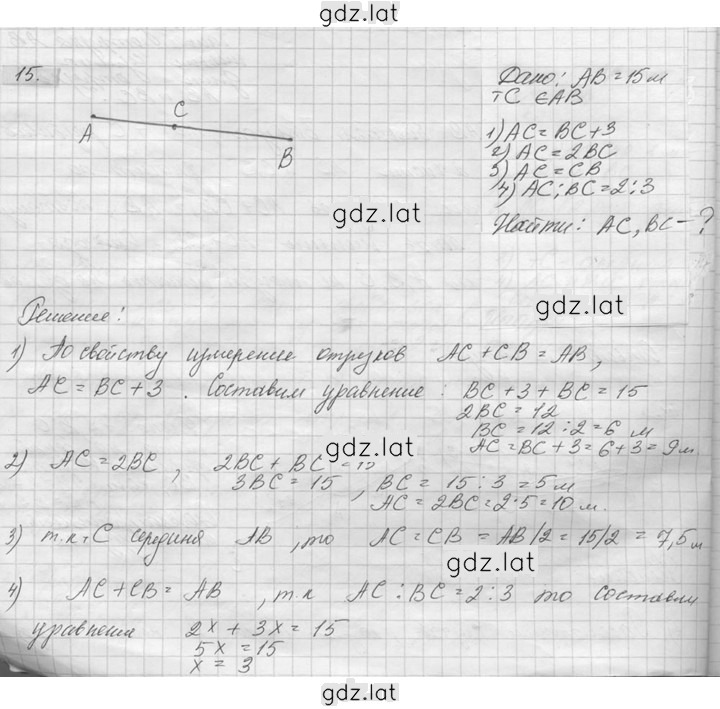 gdz.lat
15.
Дано: AB = 15 м
тС ∈ AB
C
A
B
1) AC = BC + 3
2) AC = 2BC
3) AC = CB
4) AC : BC = 2 : 3
gdz.lat
Найти: AC, BC - ?
gdz.lat
Решение:
1) По свойству измерение отрезков AC + CB = AB,
AC = BC + 3 . Составим уравнение : BC + 3 + BC = 15
2BC = 12
BC = 12 : 2 = 6 м
AC = BC + 3 = 6 + 3 = 9 м.
gdz.lat
2) AC = 2BC , 2BC + BC = 15
3BC = 15 , BC = 15 : 3 = 5 м
AC = 2BC = 2 · 5 = 10 м.
3) т.к тС середина AB , то AC = CB = AB/2 = 15/2 = 7,5 м
gdz.lat
4) AC + CB = AB , т.к AC : BC = 2 : 3 то составим
уравнения 2x + 3x = 15
5x = 15
x = 3
gdz.lat